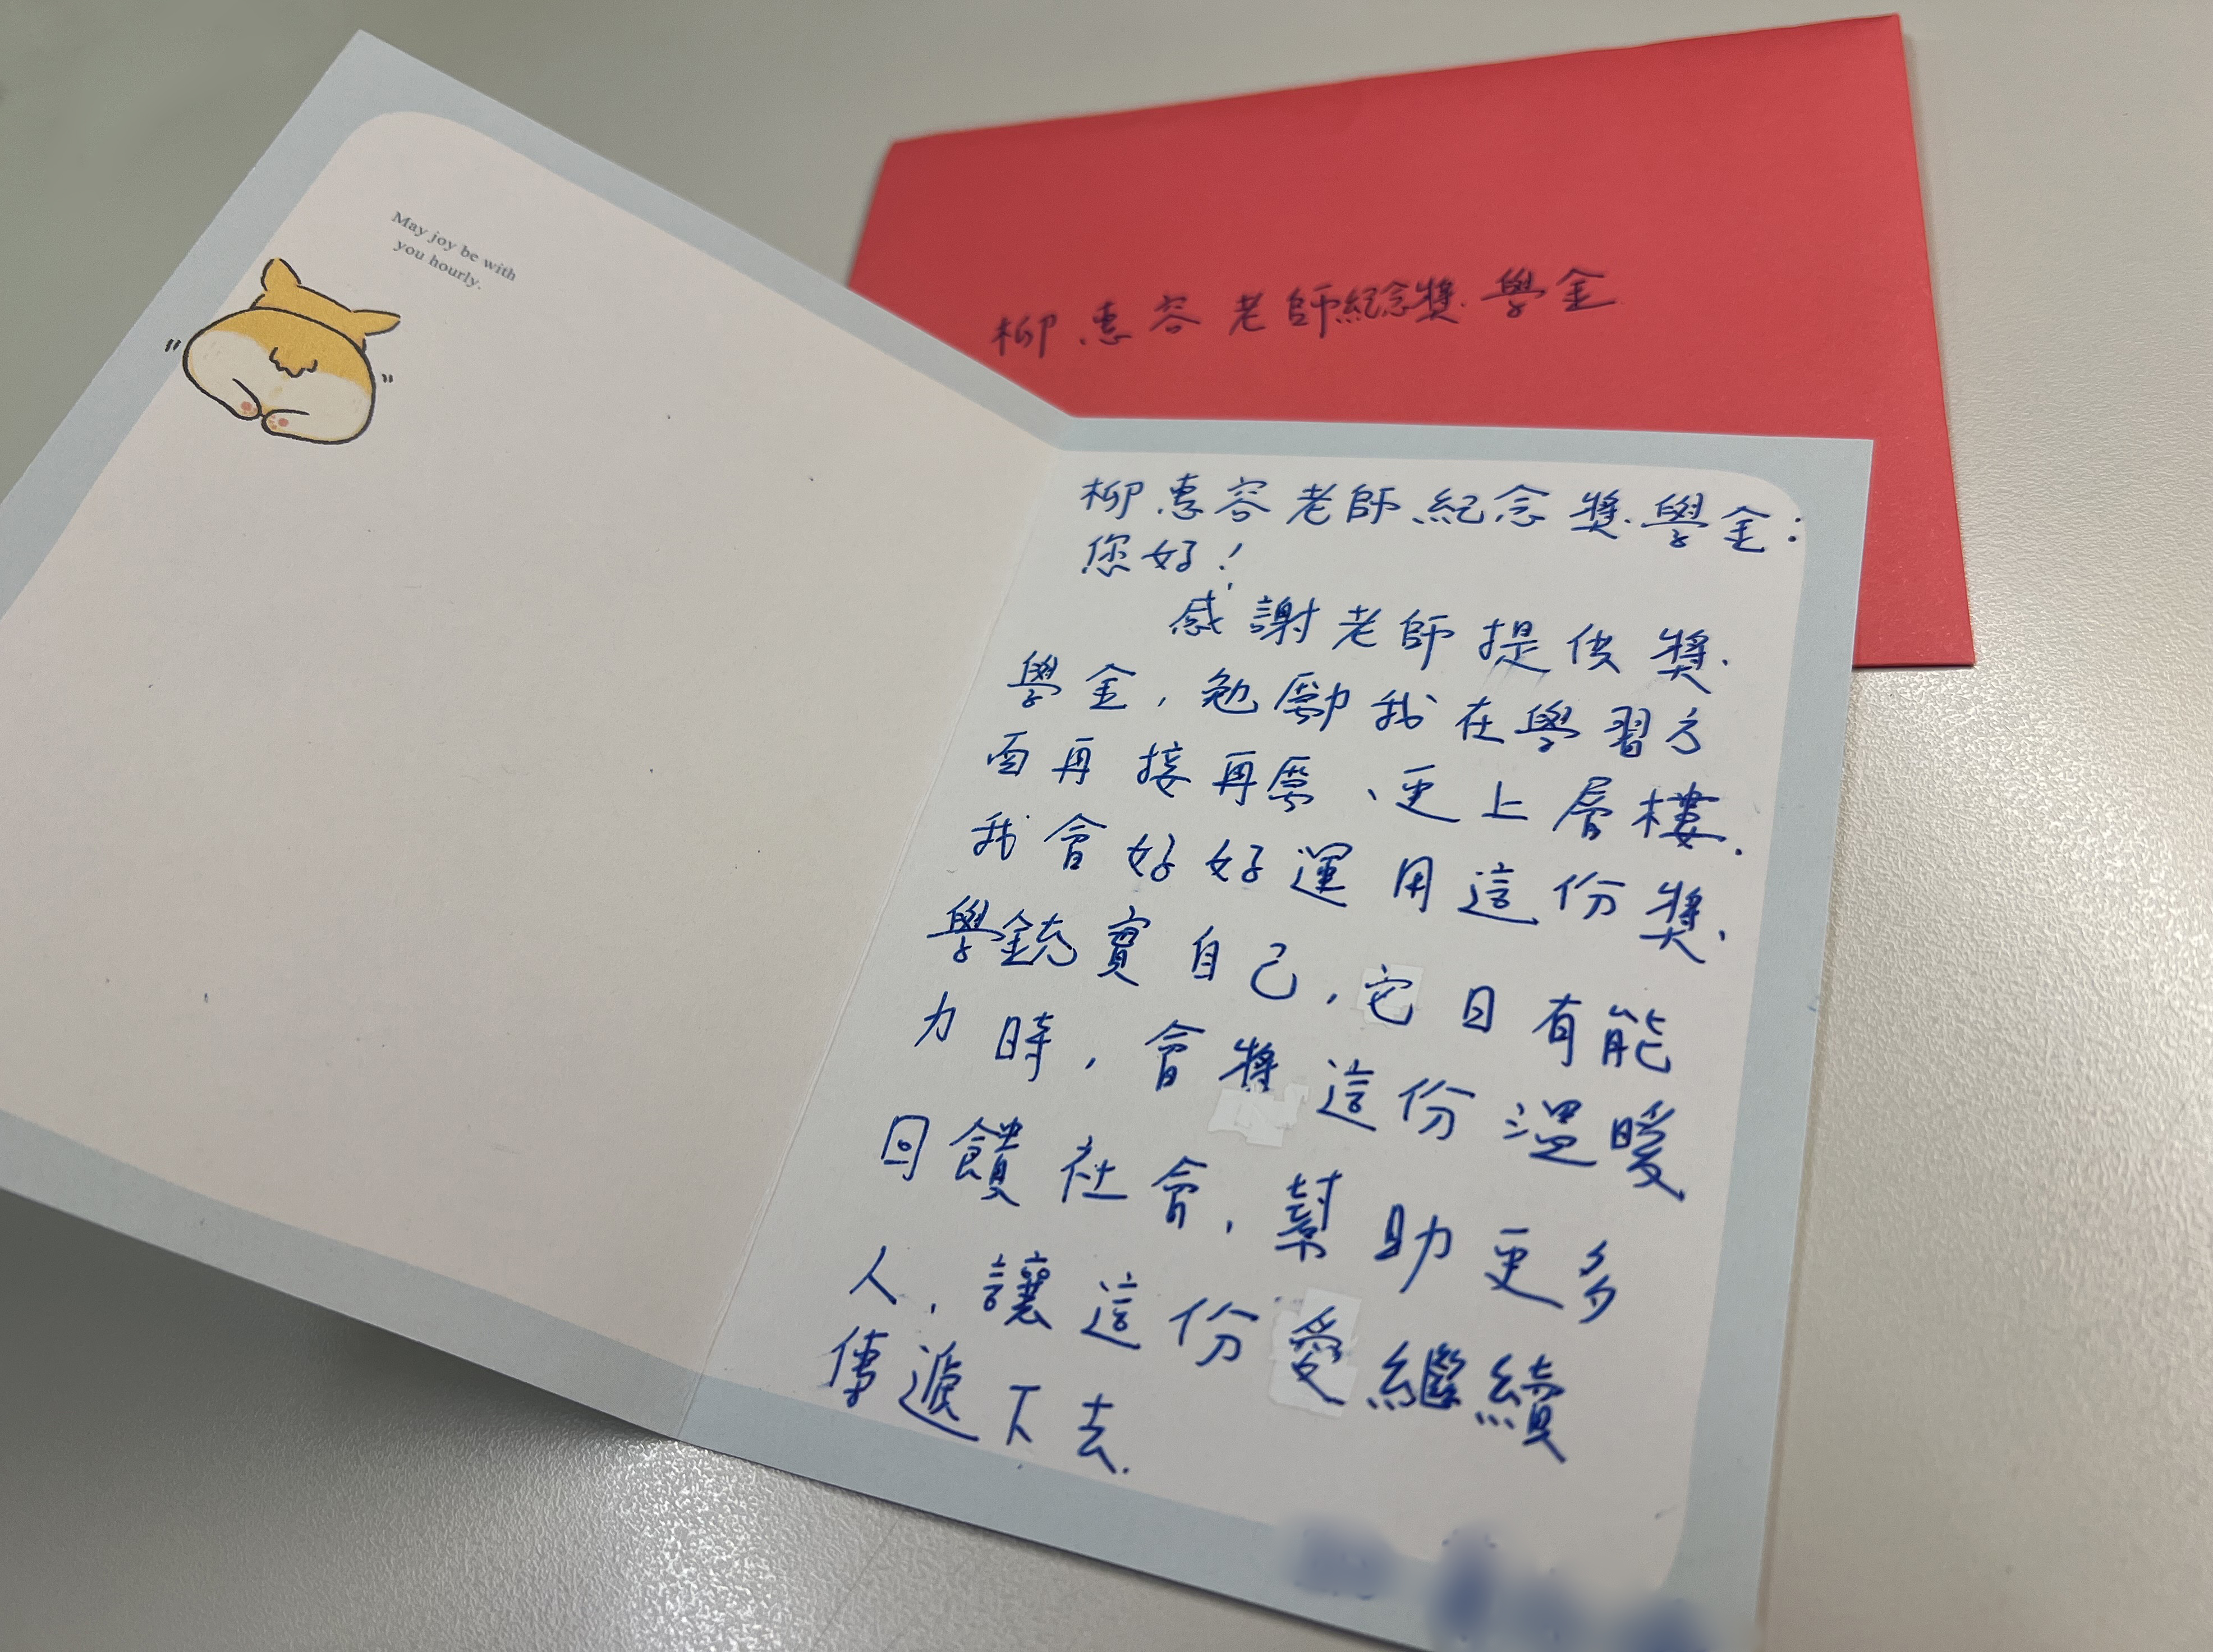 May joy be with
you hourly.
柳惠容老師紀念獎學金
柳惠容老師紀念獎學金：
您好！
感謝老師提供獎
學金，勉勵我在學習方
面再接再厲、更上層樓.
我會好好運用這份獎
學金充實自己，它日有能
力時，會將這份溫暖
回饋社會，幫助更多
人，讓這份愛繼續
傳遞下去.